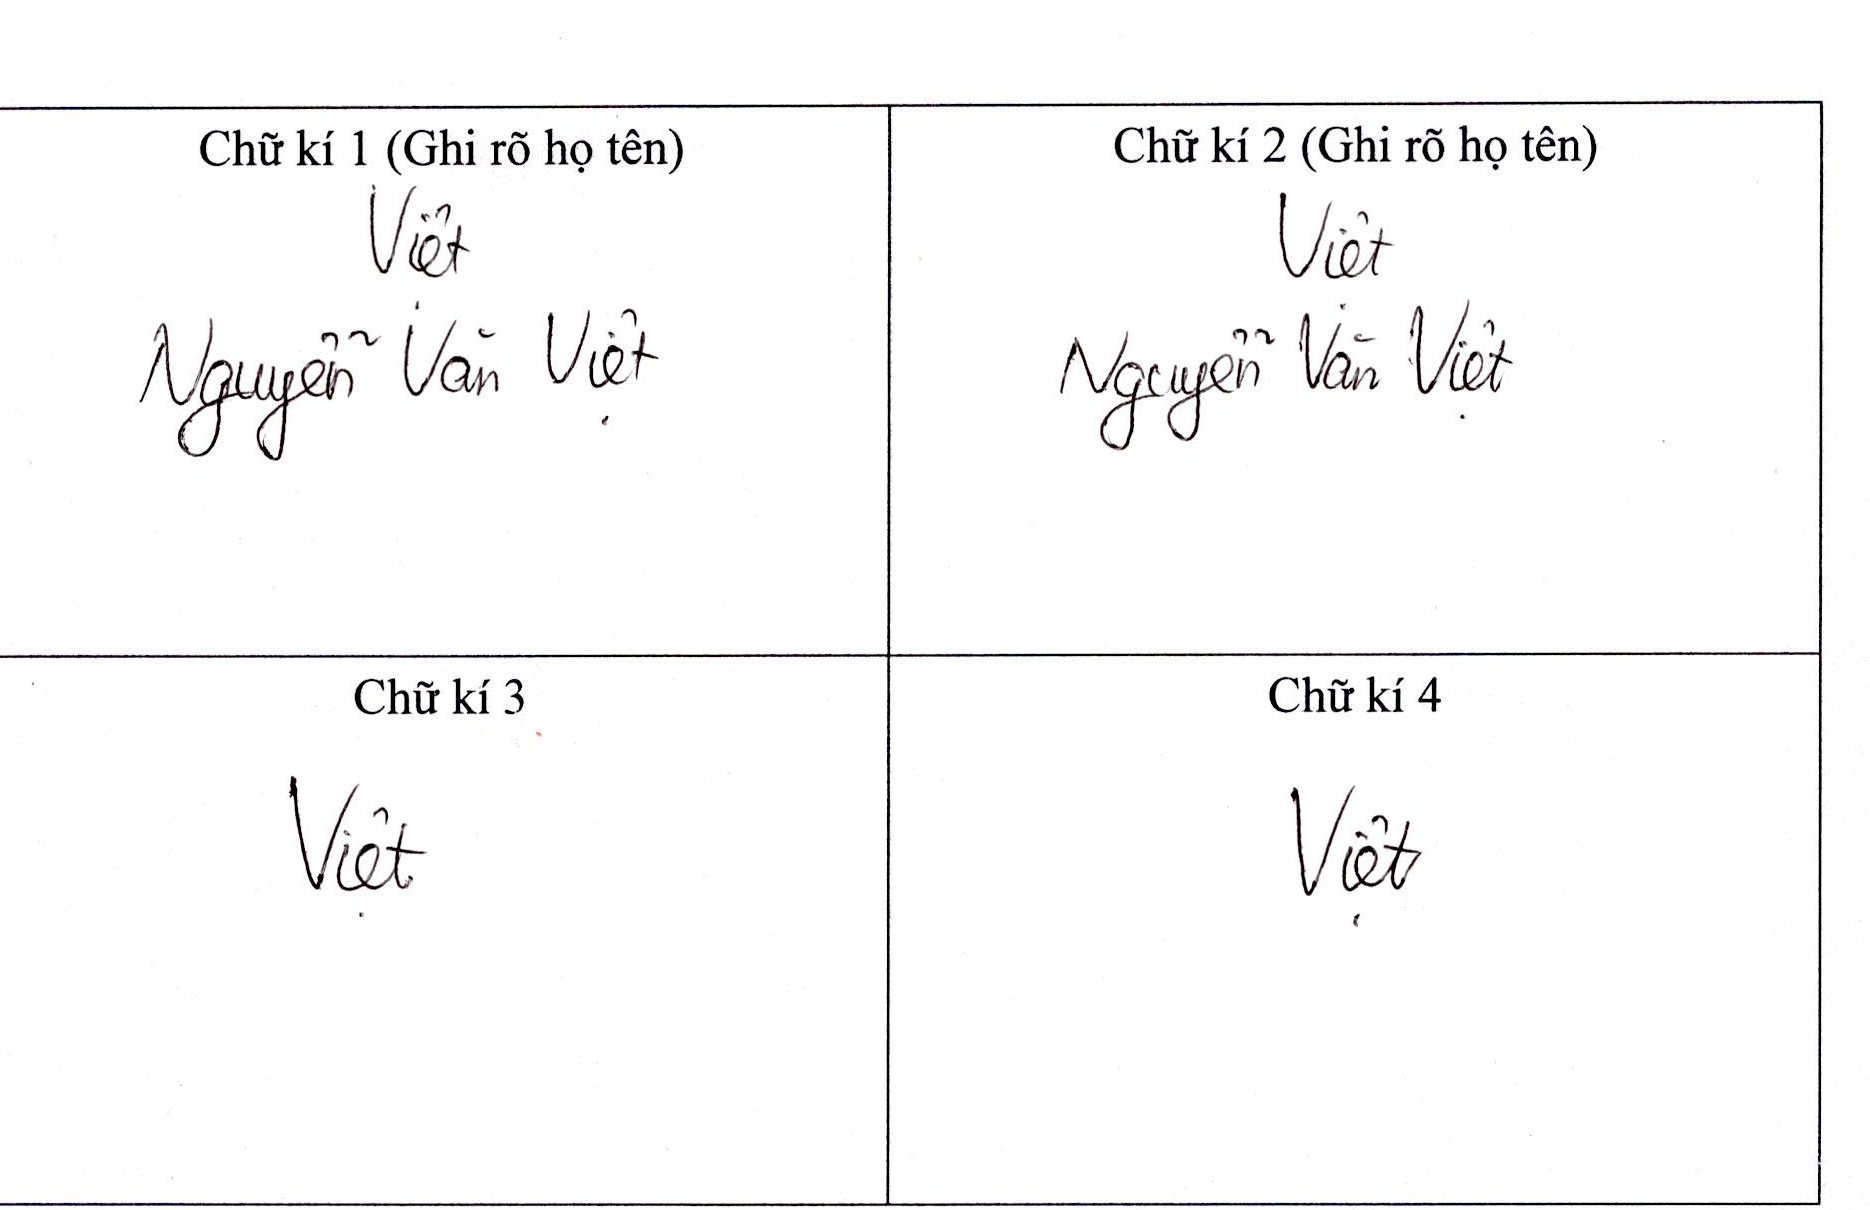 Chữ kí 1 (Ghi rõ họ tên)
Việt
Nguyễn Văn Việt
Chữ kí 2 (Ghi rõ họ tên)
Việt
Nguyễn Văn Việt
Chữ kí 3
Việt
Chữ kí 4
Việt